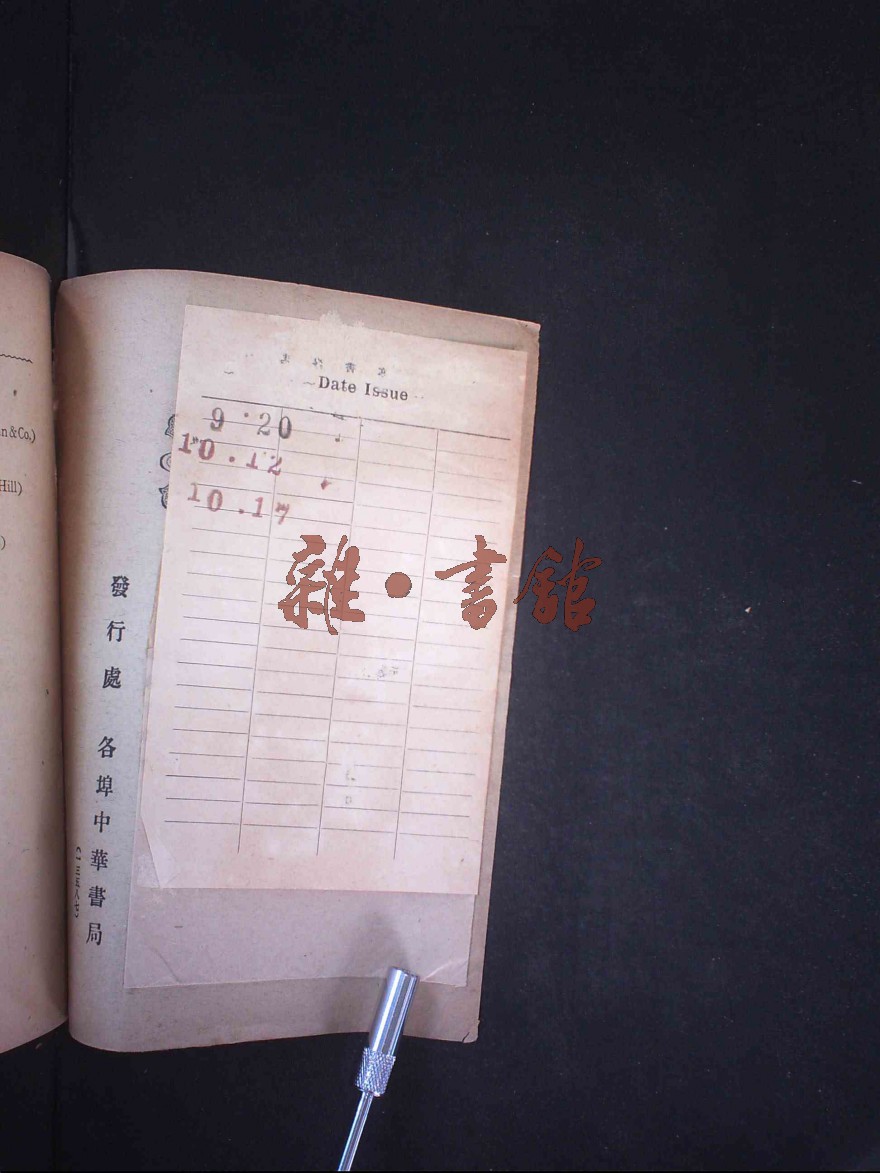 n & Co.)
Hill)
)
~Date Issue
9 · 20
10 . 12
10 . 17
雜•書館
發行處 各埠中華書局
(一三五八七)